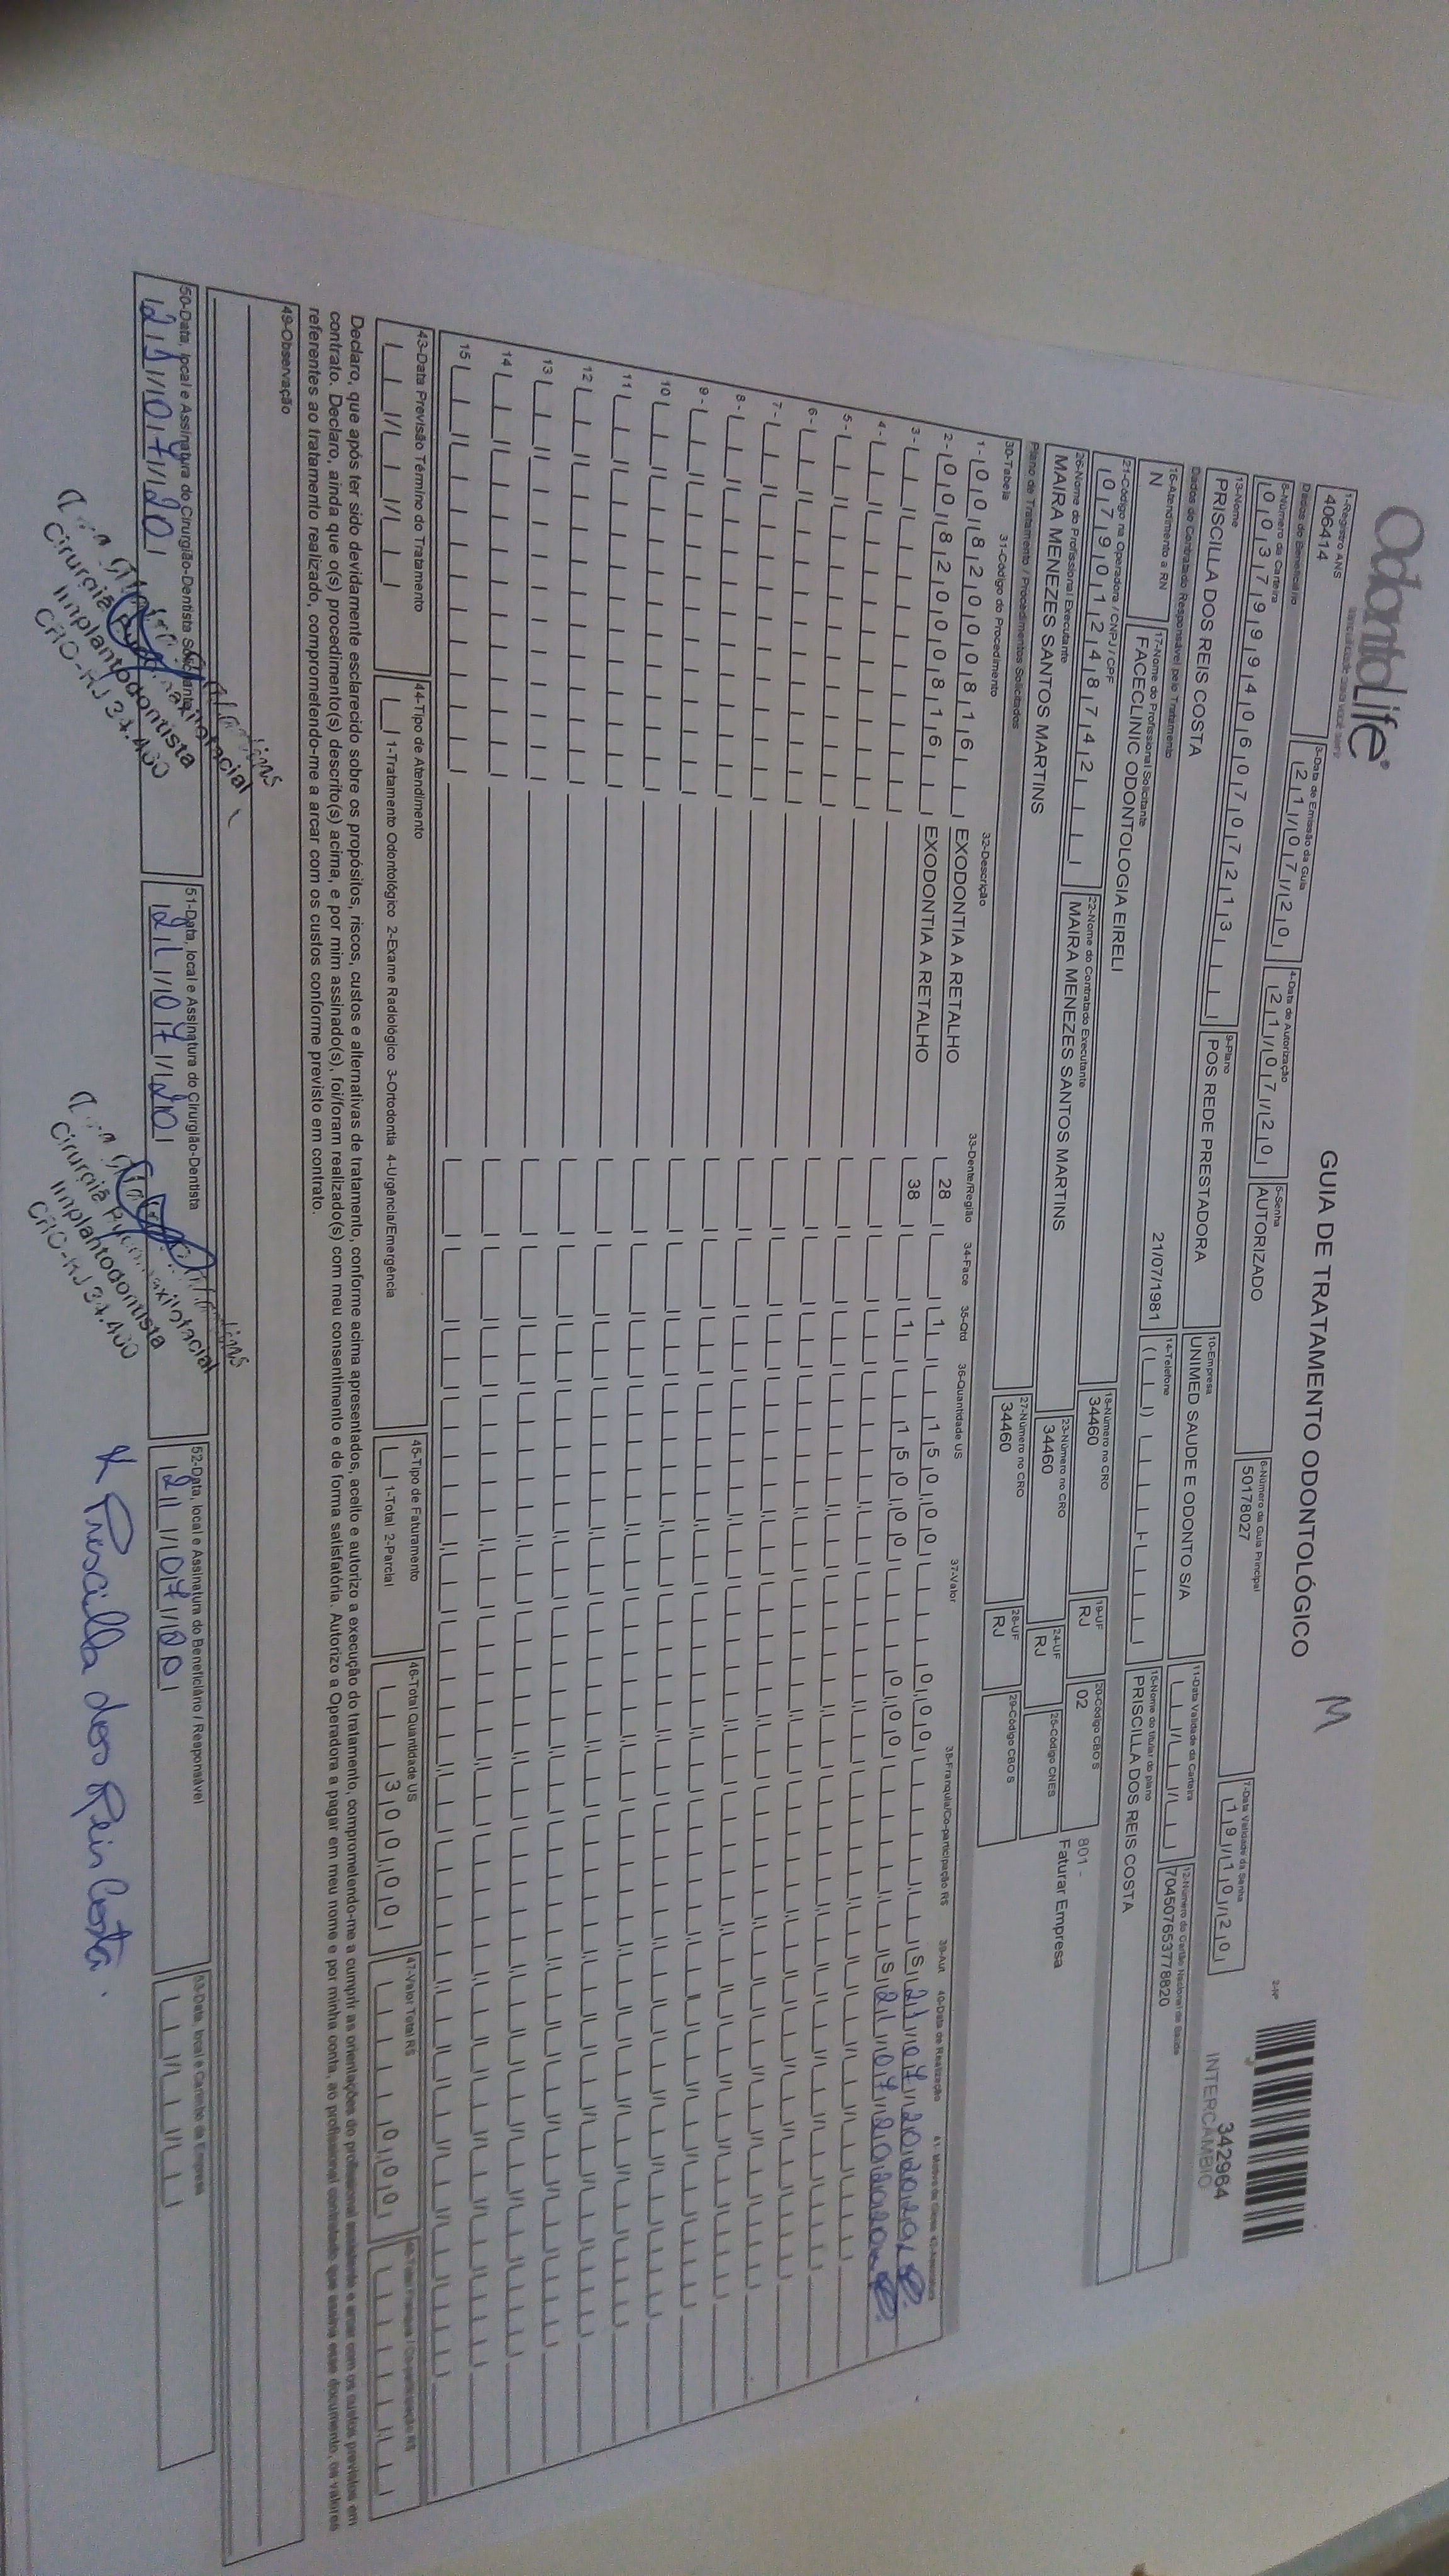 OdontoLife®
GUIA DE TRATAMENTO ODONTOLÓGICO
M
2-Nº
342964
INTERCÂMBIO
1-Registro ANS
406414
3-Data de Emissão da Guia
21/07/20
4-Data de Autorização
21/07/20
5-Senha
AUTORIZADO
6-Número da Guia Principal
50178027
7-Data Validade da Senha
19/10/20
Dados do Beneficiário
8-Número da Carteira
00379994060707213
9-Plano
POS REDE PRESTADORA
10-Empresa
UNIMED SAUDE E ODONTO S/A
11-Data Validade da Carteira
12-Número do Cartão Nacional de Saúde
704507653778820
13-Nome
PRISCILLA DOS REIS COSTA
21/07/1981
14-Telefone
15-Nome do titular do plano
PRISCILLA DOS REIS COSTA
Dados do Contratado Responsável pelo Tratamento
16-Atendimento a RN
N
17-Nome do Profissional Solicitante
FACECLINIC ODONTOLOGIA EIRELI
18-Número no CRO
34460
19-UF
RJ
20-Código CBO S
02
801 -
Faturar Empresa
21-Código na Operadora / CNPJ / CPF
07901248742
22-Nome do Contratado Executante
MAIRA MENEZES SANTOS MARTINS
23-Número no CRO
34460
24-UF
RJ
25-Código CNES
26-Nome do Profissional Executante
MAIRA MENEZES SANTOS MARTINS
27-Número no CRO
34460
28-UF
RJ
29-Código CBO S
Plano de Tratamento / Procedimentos Solicitados
30-Tabela 31-Código do Procedimento 32-Descrição 33-Dente/Região 34-Face 35-Qtd 36-Quantidade US 37-Valor 38-Franquia/Co-participação R$ 39-Aut 40-Data de Realização
1 - 00 82000816 EXODONTIA A RETALHO 28 1 150,00 0,00 S 21/07/2020
2 - 00 82000816 EXODONTIA A RETALHO 38 1 150,00 0,00 S 21/07/2020
3 -
4 -
5 -
6 -
7 -
8 -
9 -
10
11
12
13
14
15
43-Data Previsão Término do Tratamento
44-Tipo de Atendimento
1-Tratamento Odontológico 2-Exame Radiológico 3-Ortodontia 4-Urgência/Emergência
45-Tipo de Faturamento
1-Total 2-Parcial
46-Total Quantidade US
300,00
47-Valor Total R$
0,00
Declaro, que após ter sido devidamente esclarecido sobre os propósitos, riscos, custos e alternativas de tratamento, conforme acima apresentados, aceito e autorizo a execução do tratamento, comprometendo-me a cumprir as orientações do profissional assistente e arcar com os custos previstos em
contrato. Declaro, ainda que o(s) procedimento(s) descrito(s) acima, e por mim assinado(s), foi/foram realizado(s) com meu consentimento e de forma satisfatória. Autorizo a Operadora a pagar em meu nome e por minha conta, ao profissional contratado que assina esse documento, os valores
referentes ao tratamento realizado, comprometendo-me a arcar com os custos conforme previsto em contrato.
49-Observação
50-Data, local e Assinatura do Cirurgião-Dentista Solicitante
21/07/20
51-Data, local e Assinatura do Cirurgião-Dentista
21/07/20
52-Data, local e Assinatura do Beneficiário / Responsável
21/07/20
53-Data, local e Carimbo da Empresa
Implantodontista
Implantodontista
x Priscilla dos Reis Costa.